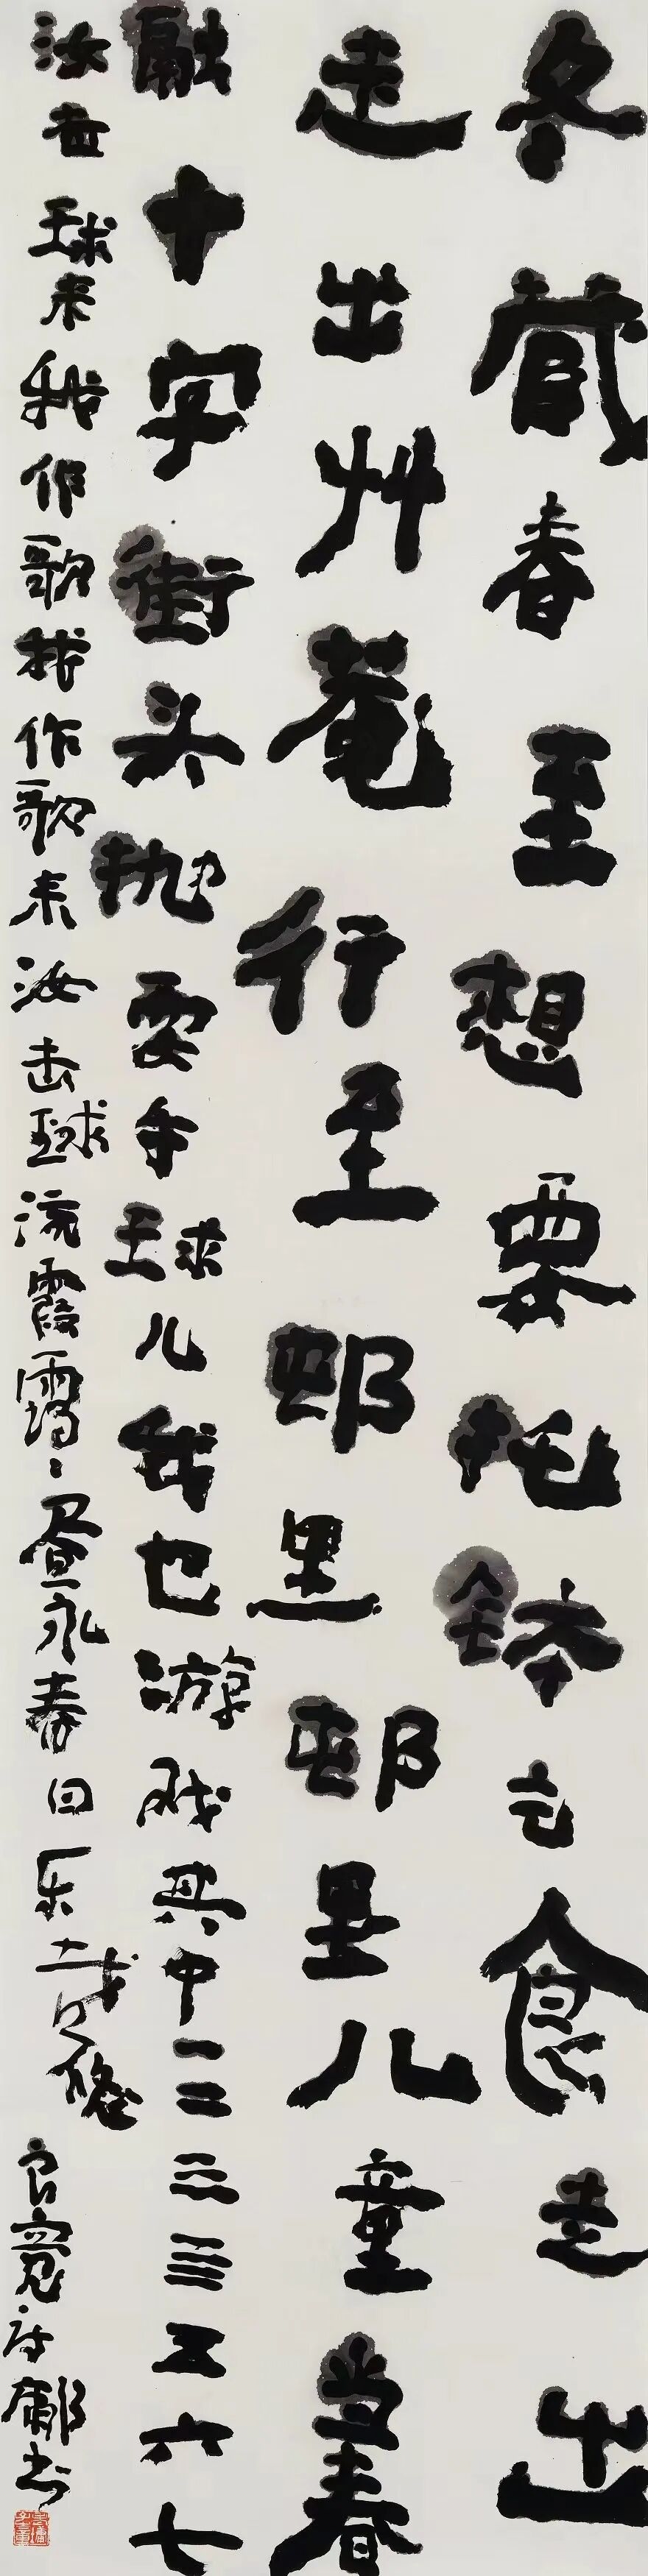 冬蔵春至想要托钵乞食走出
走出艸菴行至邨里邨里儿童当春
融十字街头抛耍手球儿我也游戏其中一二三亖五六七
汝击球来我作歌我作歌来汝击球流霞霭〻昼永春日乐哉
良寬诗书